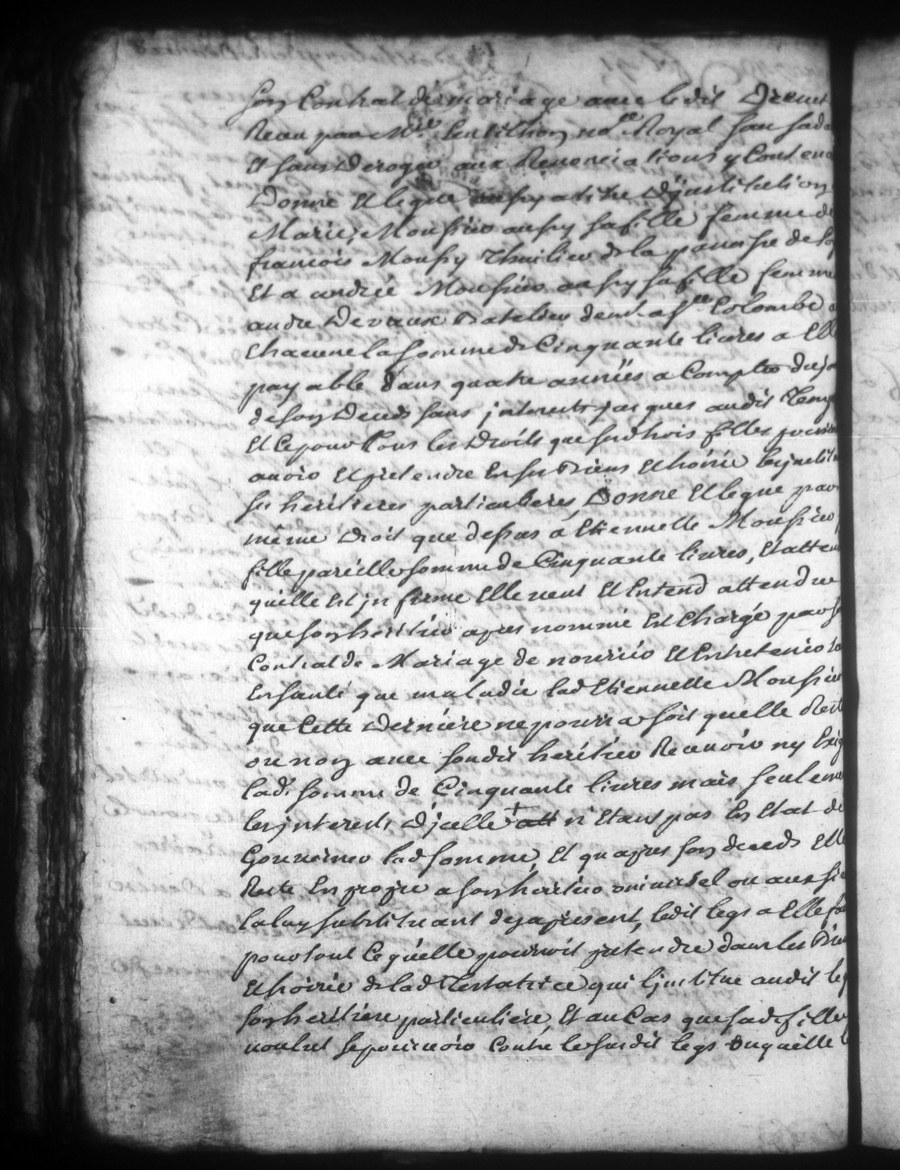 son Contrat de mariage avec ledit
Receu par Me no.re Royal sans
Et sans Deroger aux Renonciations y
Donne Et legue aussy a titre Djnstitution
Marie Monsieu aussy sa fille femme de
francois de la parroisse de
Et a andrée Monsieu aussy sa fille femme
andre de Ste Colombe
Chacune la somme de Cinquante livres a
payable dans quatre années a Compter du
de son Deceds sans jnterests jusques audit
Et Ce pour tous les Droits que sesd trois filles
avoir Et pretendre En ses Biens Et hoirie les
ses heritieres particulieres, Donne Et legue par
même Droit que dessus à Etiennette Monsieu
fille pareille somme de Cinquante livres, Et
qu'elle Est jnfirme Elle veut Et Entend attendu
que son heritier apres nommé Est Chargé par
Contrat de Mariage de nourrir Et Entretenir
En santé que maladie lad Etiennette Monsieu
que Cette Derniere ne pourra soit quelle
ou non avec sondit heritier Recevoir ny
lad. somme de Cinquante livres mais
les jnterests Djcelle + n'Etant pas En Etat de
Gouverner lad somme, Et qu'apres son deceds
Reste En propre a son heritier universel ou
la luy substituant des apresent, ledit legs a Elle
pour tout Ce qu'elle pourroit pretendre dans les
Et hoirie de lad Testatrice qui l'jnstitue audit
son heritiere particuliere, Et au Cas que sad. fille
voulut se pourvoir Contre le susdit legs